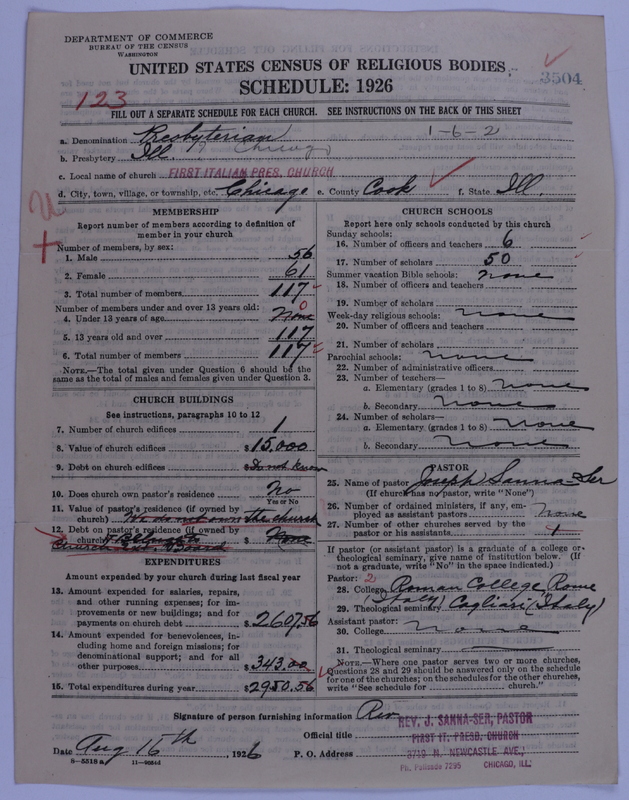 DEPARTMENT OF COMMERCE
BUREAU OF THE CENSUS
WASHINGTON
UNITED STATES CENSUS OF RELIGIOUS BODIES
3504
SCHEDULE: 1926
123
FILL OUT A SEPARATE SCHEDULE FOR EACH CHURCH. SEE INSTRUCTIONS ON THE BACK OF THIS SHEET
a. Denomination Presbyterian 1-6-2
b. Presbytery Ill. Chicago
c. Local name of church FIRST ITALIAN PRES. CHURCH
d. City, town, village, or township, etc. Chicago e. County Cook f. State Ill.
MEMBERSHIP
Report number of members according to definition of
member in your church
Number of members, by sex:
1. Male 56
2. Female 61
3. Total number of members 117
Number of members under and over 13 years old: 0
4. Under 13 years of age None
5. 13 years old and over 117
6. Total number of members 117
NOTE.—The total given under Question 6 should be the
same as the total of males and females given under Question 3.
CHURCH BUILDINGS
See instructions, paragraphs 10 to 12
7. Number of church edifices 1
8. Value of church edifices $15,000
9. Debt on church edifices $Do not know
10. Does church own pastor's residence No
Yes or No
11. Value of pastor's residence (if owned by
church) We do not own the church
12. Debt on pastor's residence (if owned by
church) It belongs to $ None
Church Ext. Board
EXPENDITURES
Amount expended by your church during last fiscal year
13. Amount expended for salaries, repairs,
and other running expenses; for im-
provements or new buildings; and for
payments on church debt $2607.56
14. Amount expended for benevolences, in-
cluding home and foreign missions; for
denominational support; and for all
other purposes $343.00
15. Total expenditures during year $2950.56
CHURCH SCHOOLS
Report here only schools conducted by this church
Sunday schools:
16. Number of officers and teachers 6
17. Number of scholars 50
Summer vacation Bible schools: None
18. Number of officers and teachers
19. Number of scholars
Week-day religious schools: None
20. Number of officers and teachers
21. Number of scholars
Parochial schools: None
22. Number of administrative officers
23. Number of teachers—
a. Elementary (grades 1 to 8) None
b. Secondary None
24. Number of scholars—
a. Elementary (grades 1 to 8) None
b. Secondary None
PASTOR
25. Name of pastor Joseph Sanna-Ser
(If church has no pastor, write "None")
26. Number of ordained ministers, if any, em-
ployed as assistant pastors None
27. Number of other churches served by the
pastor or his assistants 1
If pastor (or assistant pastor) is a graduate of a college or
theological seminary, give name of institution below. (If
not a graduate, write "No" in the space indicated.)
Pastor: 2
28. College Roman College, Rome
(Italy)
29. Theological seminary Cagliari (Italy)
Assistant pastor:
30. College None
31. Theological seminary
NOTE.—Where one pastor serves two or more churches,
Questions 28 and 29 should be answered only on the schedule
for one of the churches; on the schedules for the other churches,
write "See schedule for church."
Signature of person furnishing information Rev
REV. J. SANNA-SER, PASTOR
Official title FIRST IT. PRESB. CHURCH
Date Aug 16th, 1926 P. O. Address 3719 N. NEWCASTLE AVE.,
8-5518 a Ph. Palisade 7295 CHICAGO, ILL.